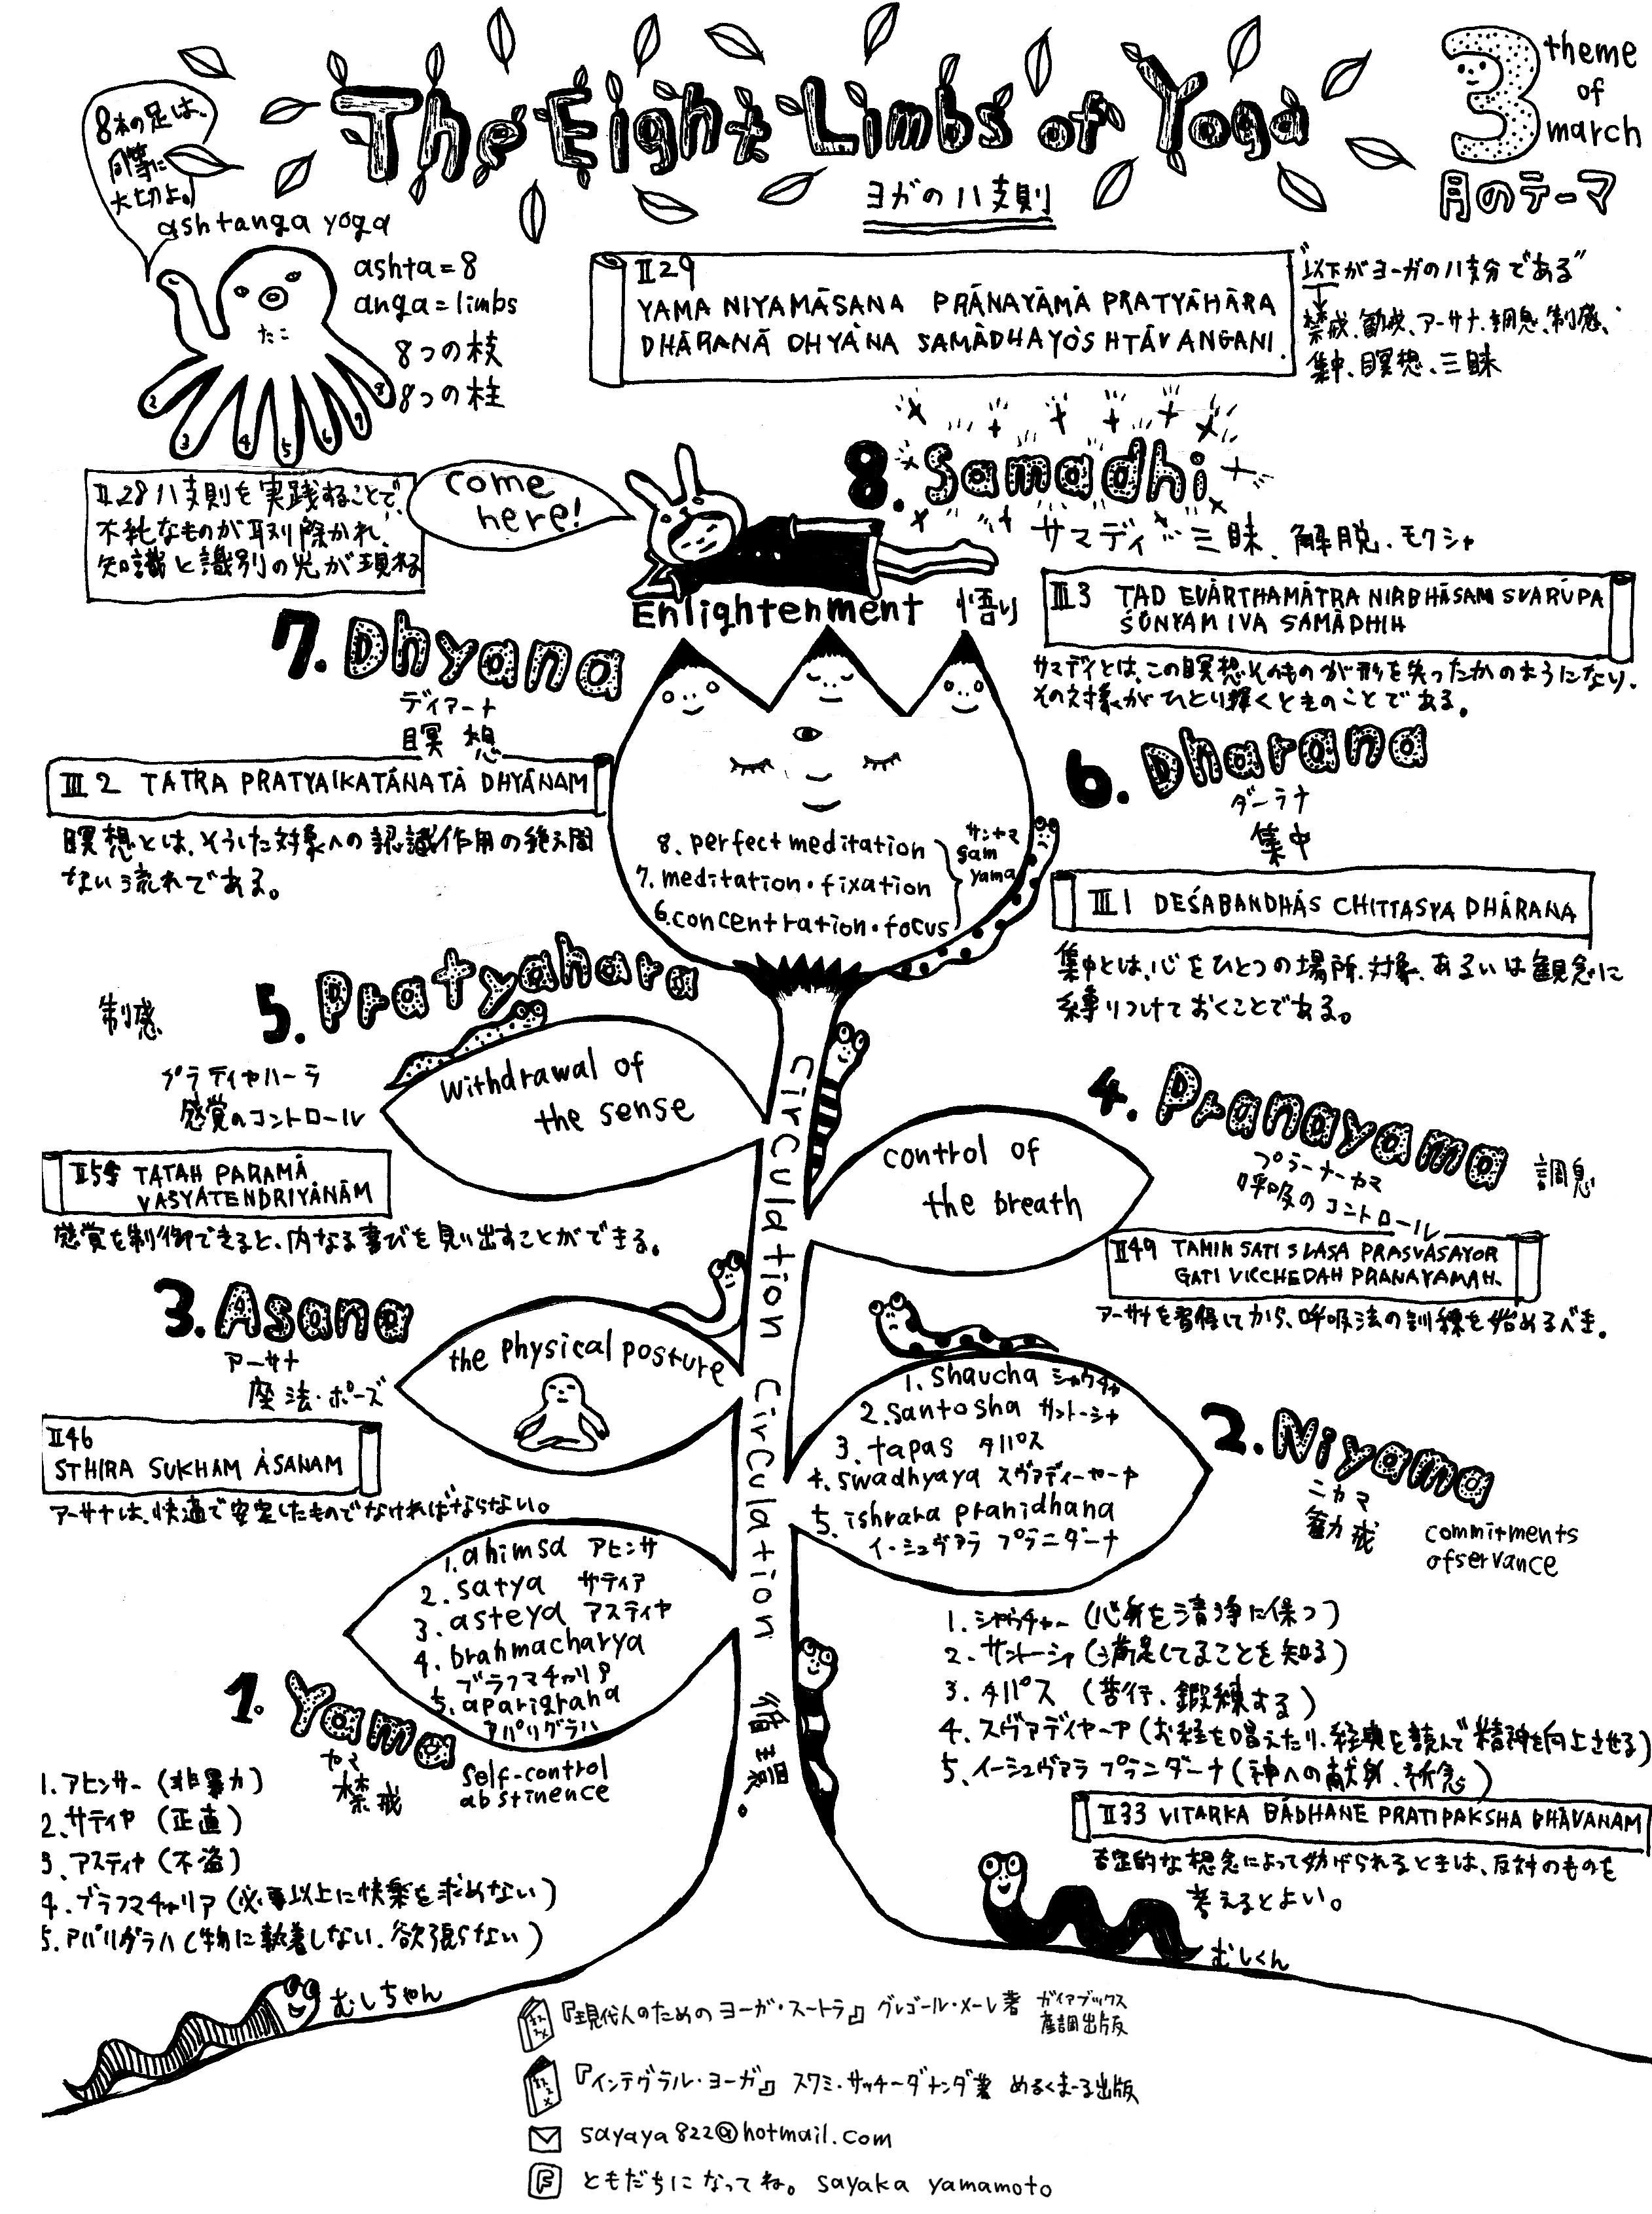 The Eight Limbs of Yoga
ヨガの八支則
3
theme
of
march
月のテーマ
8本の足は、
同等に
大切よ。
ashtanga yoga
ashta=8
anga=limbs
8つの枝
8つの柱
たこ
2
3
4
5
6
7
8
II 29
YAMA NIYAMĀSANA PRĀNAYĀMĀ PRATYĀHĀRA
DHĀRANĀ DHYĀNA SAMĀDHAYŌSHTĀVANGANI.
"以下がヨーガの八支分である"
禁戒、勧戒、アーサナ、調息、制感、
集中、瞑想、三昧
II 28 八支則を実践することで、
不純なものが取り除かれ、
知識と識別の光が現れる
come
here!
8. Samadhi
サマディ… 三昧、解脱、モクシャ
Enlightenment 悟り
III 3 TAD EVĀRTHAMĀTRA NIRBHĀSAM SVARŪPA
ŚŪNYAM IVA SAMĀDHIH
サマディとは、この瞑想そのものが形を失ったかのようになり、
その対象がひとり輝くときのことである。
7. Dhyana
ディアーナ
瞑想
III 2 TATRA PRATYAIKATĀNATĀ DHYĀNAM
瞑想とは、そうした対象への認識作用の絶え間
ない流れである。
8. perfect meditation
7. meditation・fixation
6. concentration・focus
サンヤマ
sam
yama
6. Dharana
ダーラナ
集中
III 1 DEŚABANDHĀS CHITTASYA DHĀRANA
集中とは、心をひとつの場所、対象、あるいは観念に
縛りつけておくことである。
5. Pratyahara
制感
プラティヤハーラ
感覚のコントロール
withdrawal of
the sense
II 55 TATAH PARAMĀ
VASYATENDRIYĀNĀM
感覚を制御できると、内なる喜びを見い出すことができる。
4. Pranayama
プラーナーヤマ
呼吸のコントロール
調息
control of
the breath
II 49 TAMIN SATI SLASA PRASVĀSAYOR
GATI VICCHEDAH PRANAYAMAH.
アーサナを習得してから、呼吸法の訓練を始めるべき。
3. Asana
アーサナ
座法・ポーズ
the physical posture
II 46
STHIRA SUKHAM ĀSANAM
アーサナは、快適で安定したものでなければならない。
1. shaucha シャウチャ
2. santosha サントーシャ
3. tapas タパス
4. swadhyaya スヴァディーヤーヤ
5. ishrara pranidhana
イ・シュヴァラ プラニダーナ
2. Niyama
ニヤマ
勧戒
commitments
ofservance
1. シャウチャー (心身を清浄に保つ)
2. サントーシャ (満足してることを知る)
3. タパス (苦行、鍛練する)
4. スヴァディヤーア (お経を唱えたり、経典を読んで精神を向上させる)
5. イーシュヴァラ プラニダーナ (神への献身、祈念)
II 33 VITARKA BĀDHANE PRATIPAKSHA BHĀVANAM
否定的な想念によって妨げられるときは、反対のものを
考えるとよい。
1. ahimsa アヒンサ
2. satya サティア
3. asteya アスティヤ
4. brahmacharya
ブラフマチャリア
5. aparigraha
アパリグラハ
1. Yama
ヤマ
禁戒
self-control
abstinence
1. アヒンサー (非暴力)
2. サティヤ (正直)
3. アスティヤ (不盗)
4. ブラフマチャリア (必要以上に快楽を求めない)
5. アパリグラハ (物に執着しない、欲張らない)
Circulation Circulation 循環。
むしちゃん
むしくん
『現代人のための ヨーガ・スートラ』 グレゴール・メーレ著 ガイアブックス
産調出版
『インテグラル・ヨーガ』 スワミ・サッチーダナンダ著 めるくまーる出版
sayaya822@hotmail.com
F ともだちになってね。 sayaka yamamoto